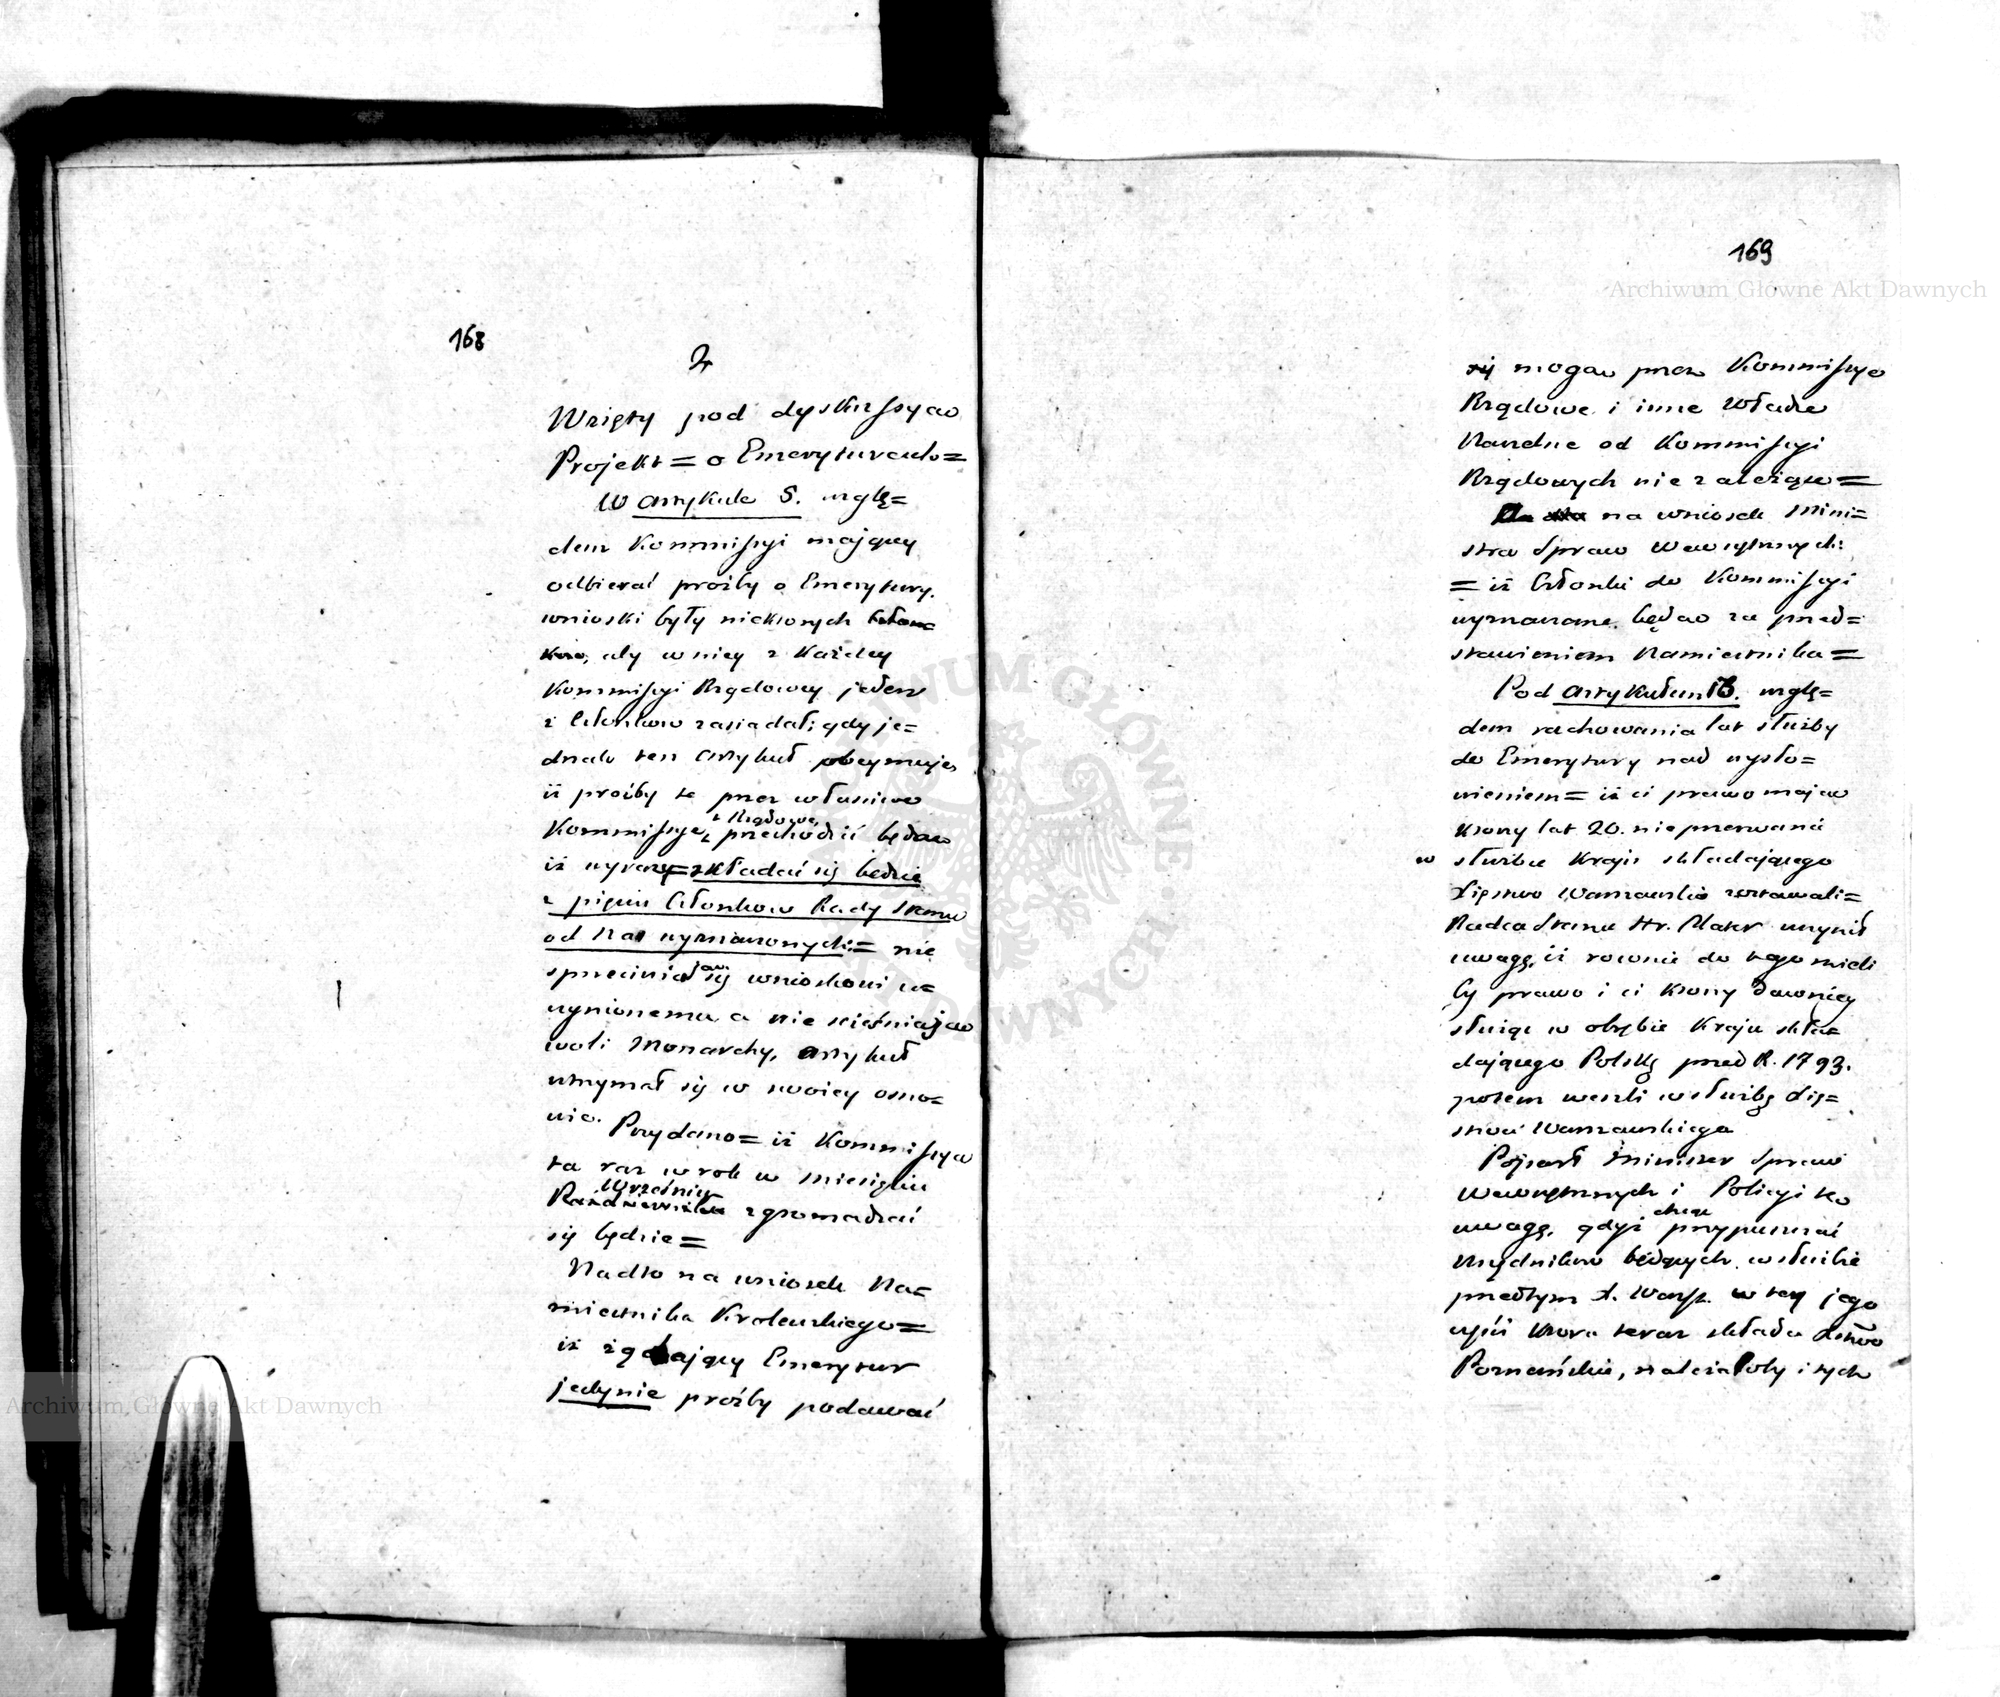 168
2
Wzięty pod dyskussyą
Projekt = o Emeryturach =
W artykule 5. wzglę=
dem Kommissyi mającey
odbierać prośby o Emerytury.
wnioski były niektorych Człon
kow, aby w niey z każdey
Kommissyi Rządowey jeden
z Członkow zasiadał; gdy je=
dnak ten artykuł obeymuje
iż prośby te przez właściwe
Kommissye Rządowe przechodzić będą
iż wyrazy = składać się będzie
z pięciu Członkow Rady Stanu
od Nas wyznaczonych = nie
sprzeciwiają się wnioskowi u=
czynionemu a nie ścieśniają
woli Monarchy, artykuł
utrzymał się w swoiey osno=
wie. Przydano = iż Kommissya
ta raz w rok w miesiącu
Wrześniu
Październiku zgromadzać
się będzie =
Nadto na wniosek Na=
miestnika Krolewskiego =
iż żądający Emerytur
jedynie prośby podawać
169
Archiwum Główne Akt Dawnych
się mogą przez Kommissye
Rządowe i inne Władze
Naczelne od Kommissyi
Rządowych nie zależące =
na wniosek Mini=
stra Spraw Wewnętrznych:
= iż Członki do Kommissyi
wyznaczone będą za przed=
stawieniem Namiestnika =
Pod artykułem 13. wzglę=
dem rachowania lat służby
do Emerytury nad wysło=
wieniem = iż ci prawo mają
ktorzy lat 20. nieprzerwanie
w służbie Kraju składającego
Xięstwo Warszawskie zostawali =
Radca Stanu Hr. Plater uczynił
uwagę, iż rownie do tego mieli
by prawo i ci ktorzy dawniey
służąc w obrębie Kraju skła=
dającego Polskę przed R. 1793.
potem weszli w służbę Xię=
stwa Warszawskiego
Poparł Minister Spraw
Wewnętrznych i Policyi tę
uwagę, gdyż chcąc przypuszczać
Urzędnikow będących w służbie
przedtym X. Warsz. w tey jego
części ktora teraz składa Xstwo
Poznańskie, należałoby i tych
Archiwum Główne Akt Dawnych